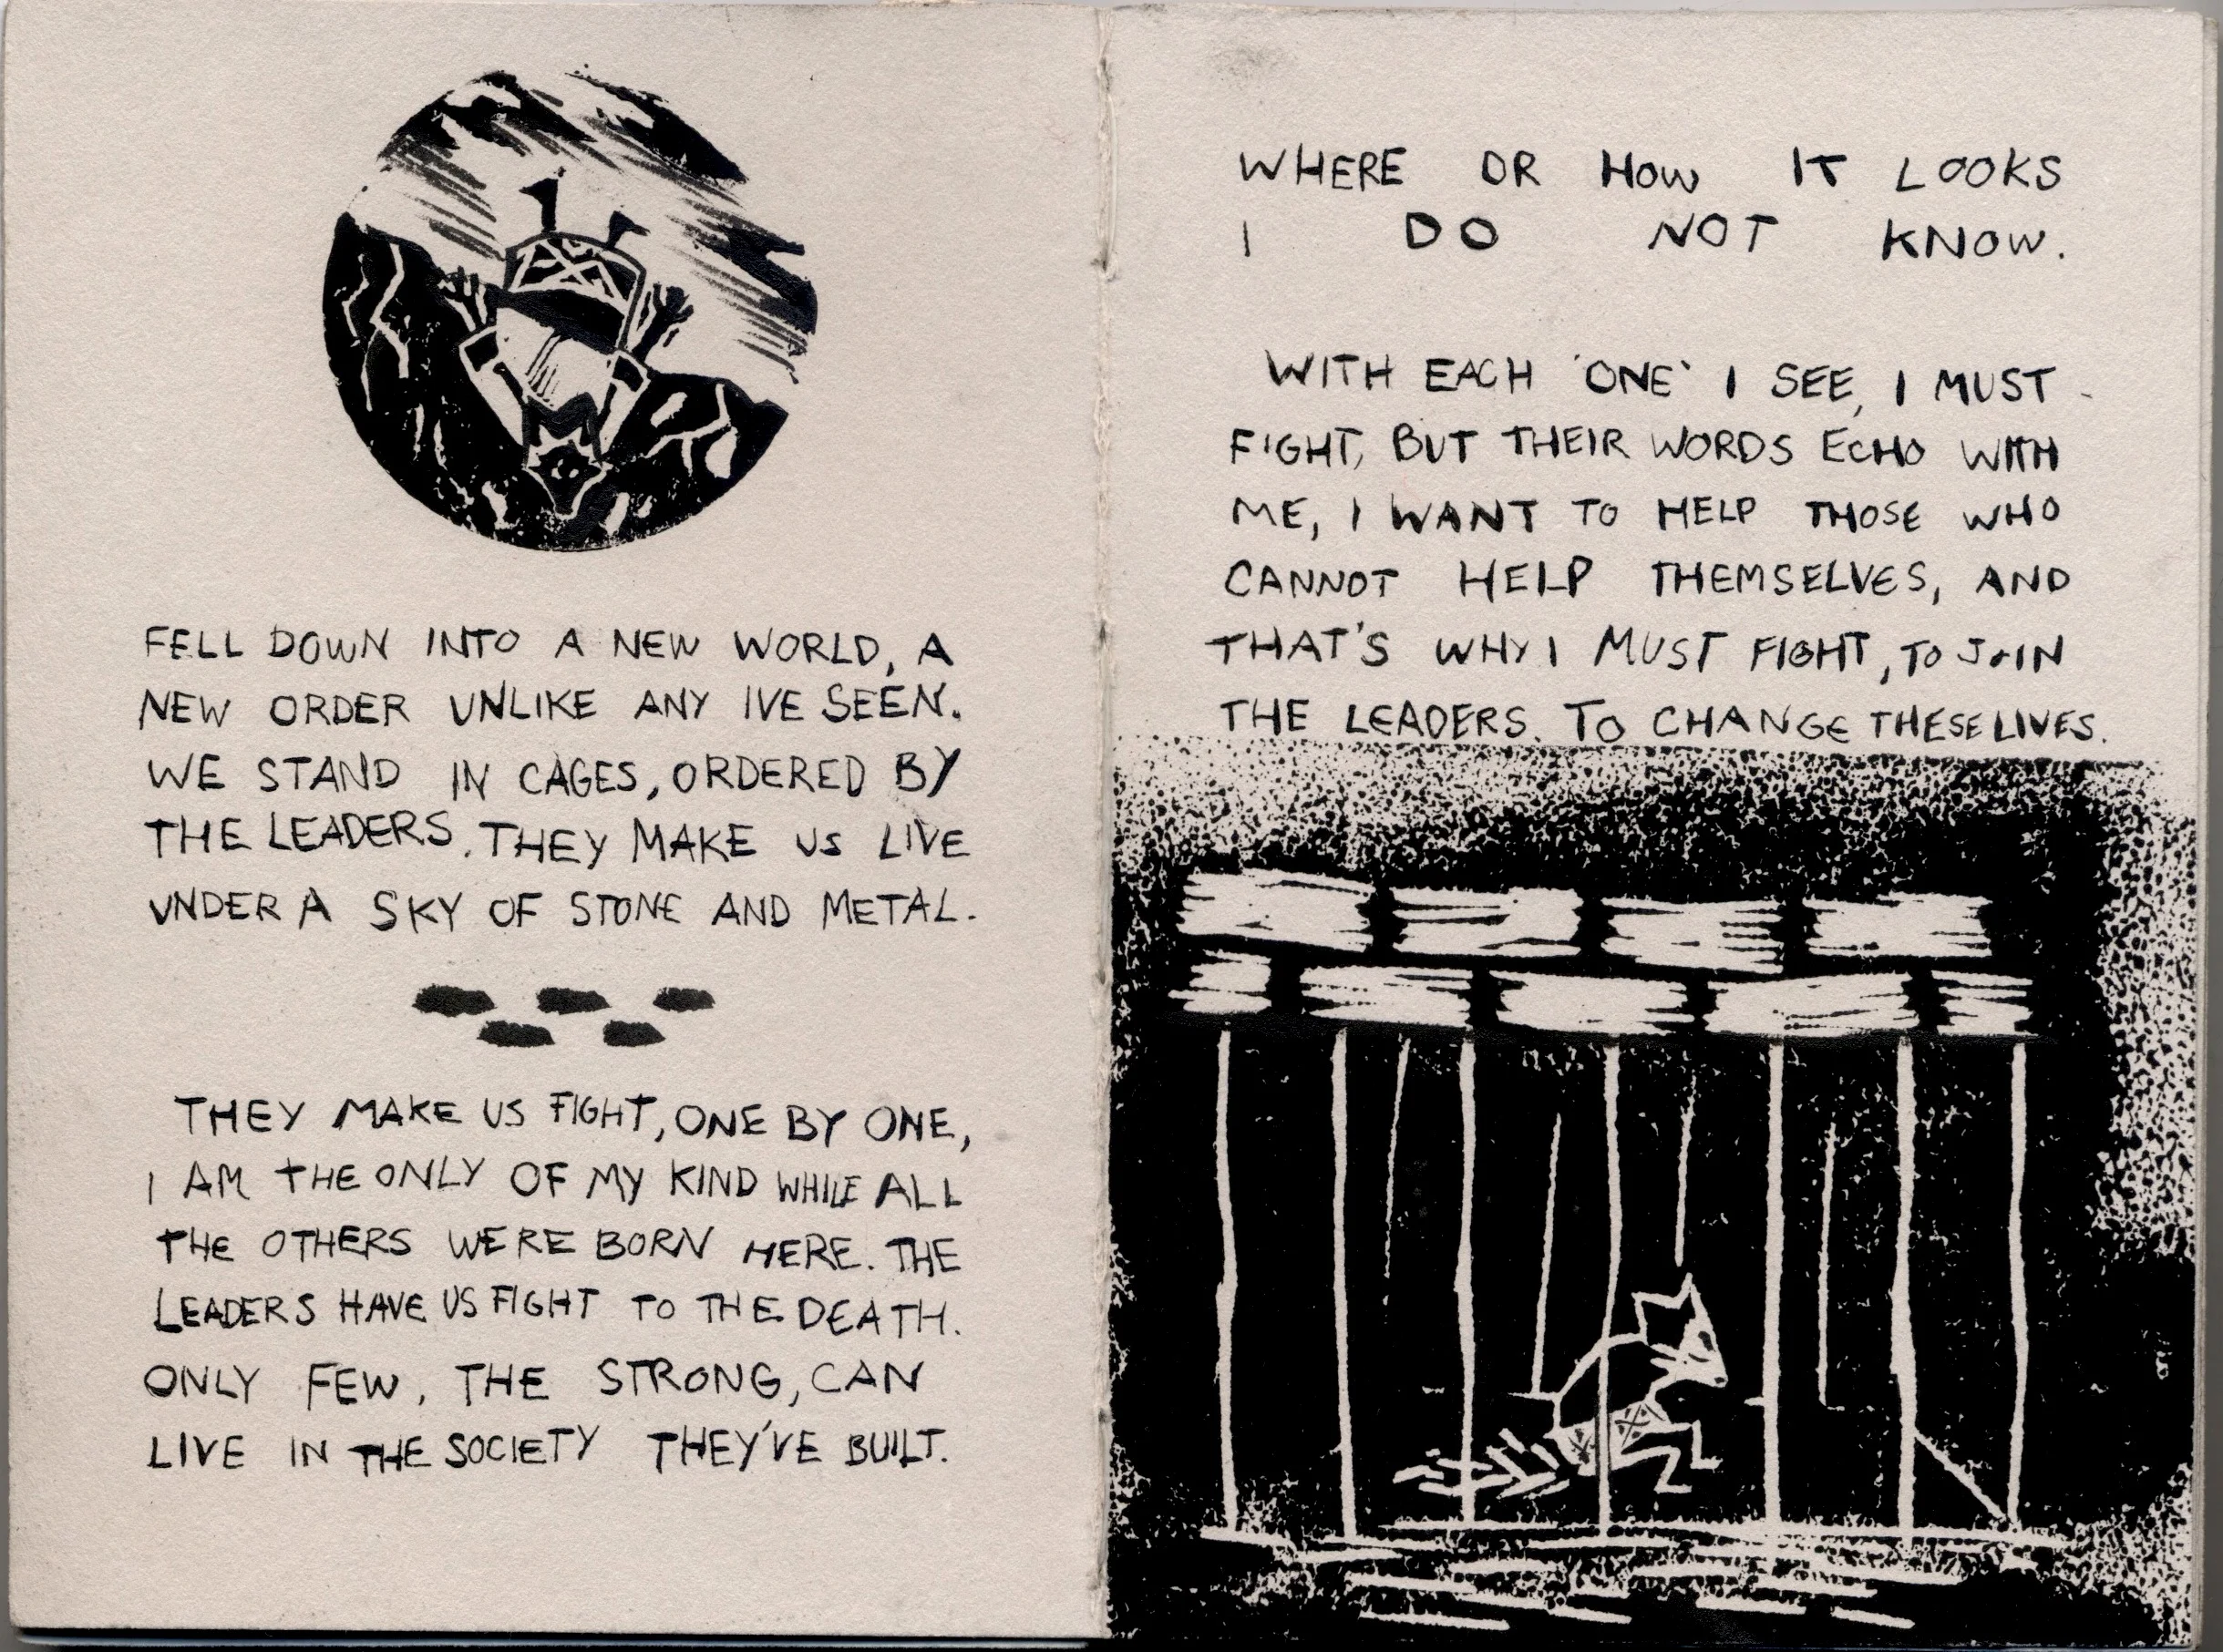 FELL DOWN INTO A NEW WORLD, A
NEW ORDER UNLIKE ANY IVE SEEN.
WE STAND IN CAGES, ORDERED BY
THE LEADERS. THEY MAKE US LIVE
UNDER A SKY OF STONE AND METAL.
THEY MAKE US FIGHT, ONE BY ONE,
I AM THE ONLY OF MY KIND WHILE ALL
THE OTHERS WERE BORN HERE. THE
LEADERS HAVE US FIGHT TO THE DEATH.
ONLY FEW, THE STRONG, CAN
LIVE IN THE SOCIETY THEY'VE BUILT.
WHERE OR HOW IT LOOKS
I DO NOT KNOW.
WITH EACH 'ONE' I SEE, I MUST
FIGHT, BUT THEIR WORDS ECHO WITH
ME, I WANT TO HELP THOSE WHO
CANNOT HELP THEMSELVES, AND
THAT'S WHY I MUST FIGHT, TO JOIN
THE LEADERS. TO CHANGE THESE LIVES.